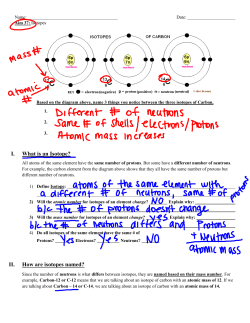 Name
Date:
Aim 37: Isotopes
ISOTOPES OF CARBON
mass #
atomic #
KEY
= electron(negative)
= proton (positive)
= neutron (neutral)
Based on the diagram above, name 3 things you notice between the three isotopes of Carbon.
1. Different # of neutrons
2. Same # of shells/electrons/protons
3. Atomic mass increases
I. What is an Isotope?
All atoms of the same element have the same number of protons. But some have a different number of neutrons.
For example, the carbon element from the diagram above shows that they all have the same number of protons but
different number of neutrons.
1) Define Isotope: atoms of the same element with
a different # of neutrons, same # of protons
2) Will the atomic number for isotopes of an element change? NO Explain why:
b/c the # of protons doesn't change
3) Will the mass number for isotopes of an element change? yes Explain why:
b/c the # of neutrons differs and Protons + Neutrons atomic mass
4) Do all isotopes of the same element have the same # of
Protons? Yes Electrons? Yes Neutron? NO
II. How are isotopes named?
Since the number of neutrons is what differs between isotopes, they are named based on their mass number. For
example, Carbon-12 or C-12 means that we are talking about an isotope of carbon with an atomic mass of 12. If we
are talking about Carbon – 14 or C-14, we are talking about an isotope of carbon with an atomic mass of 14.